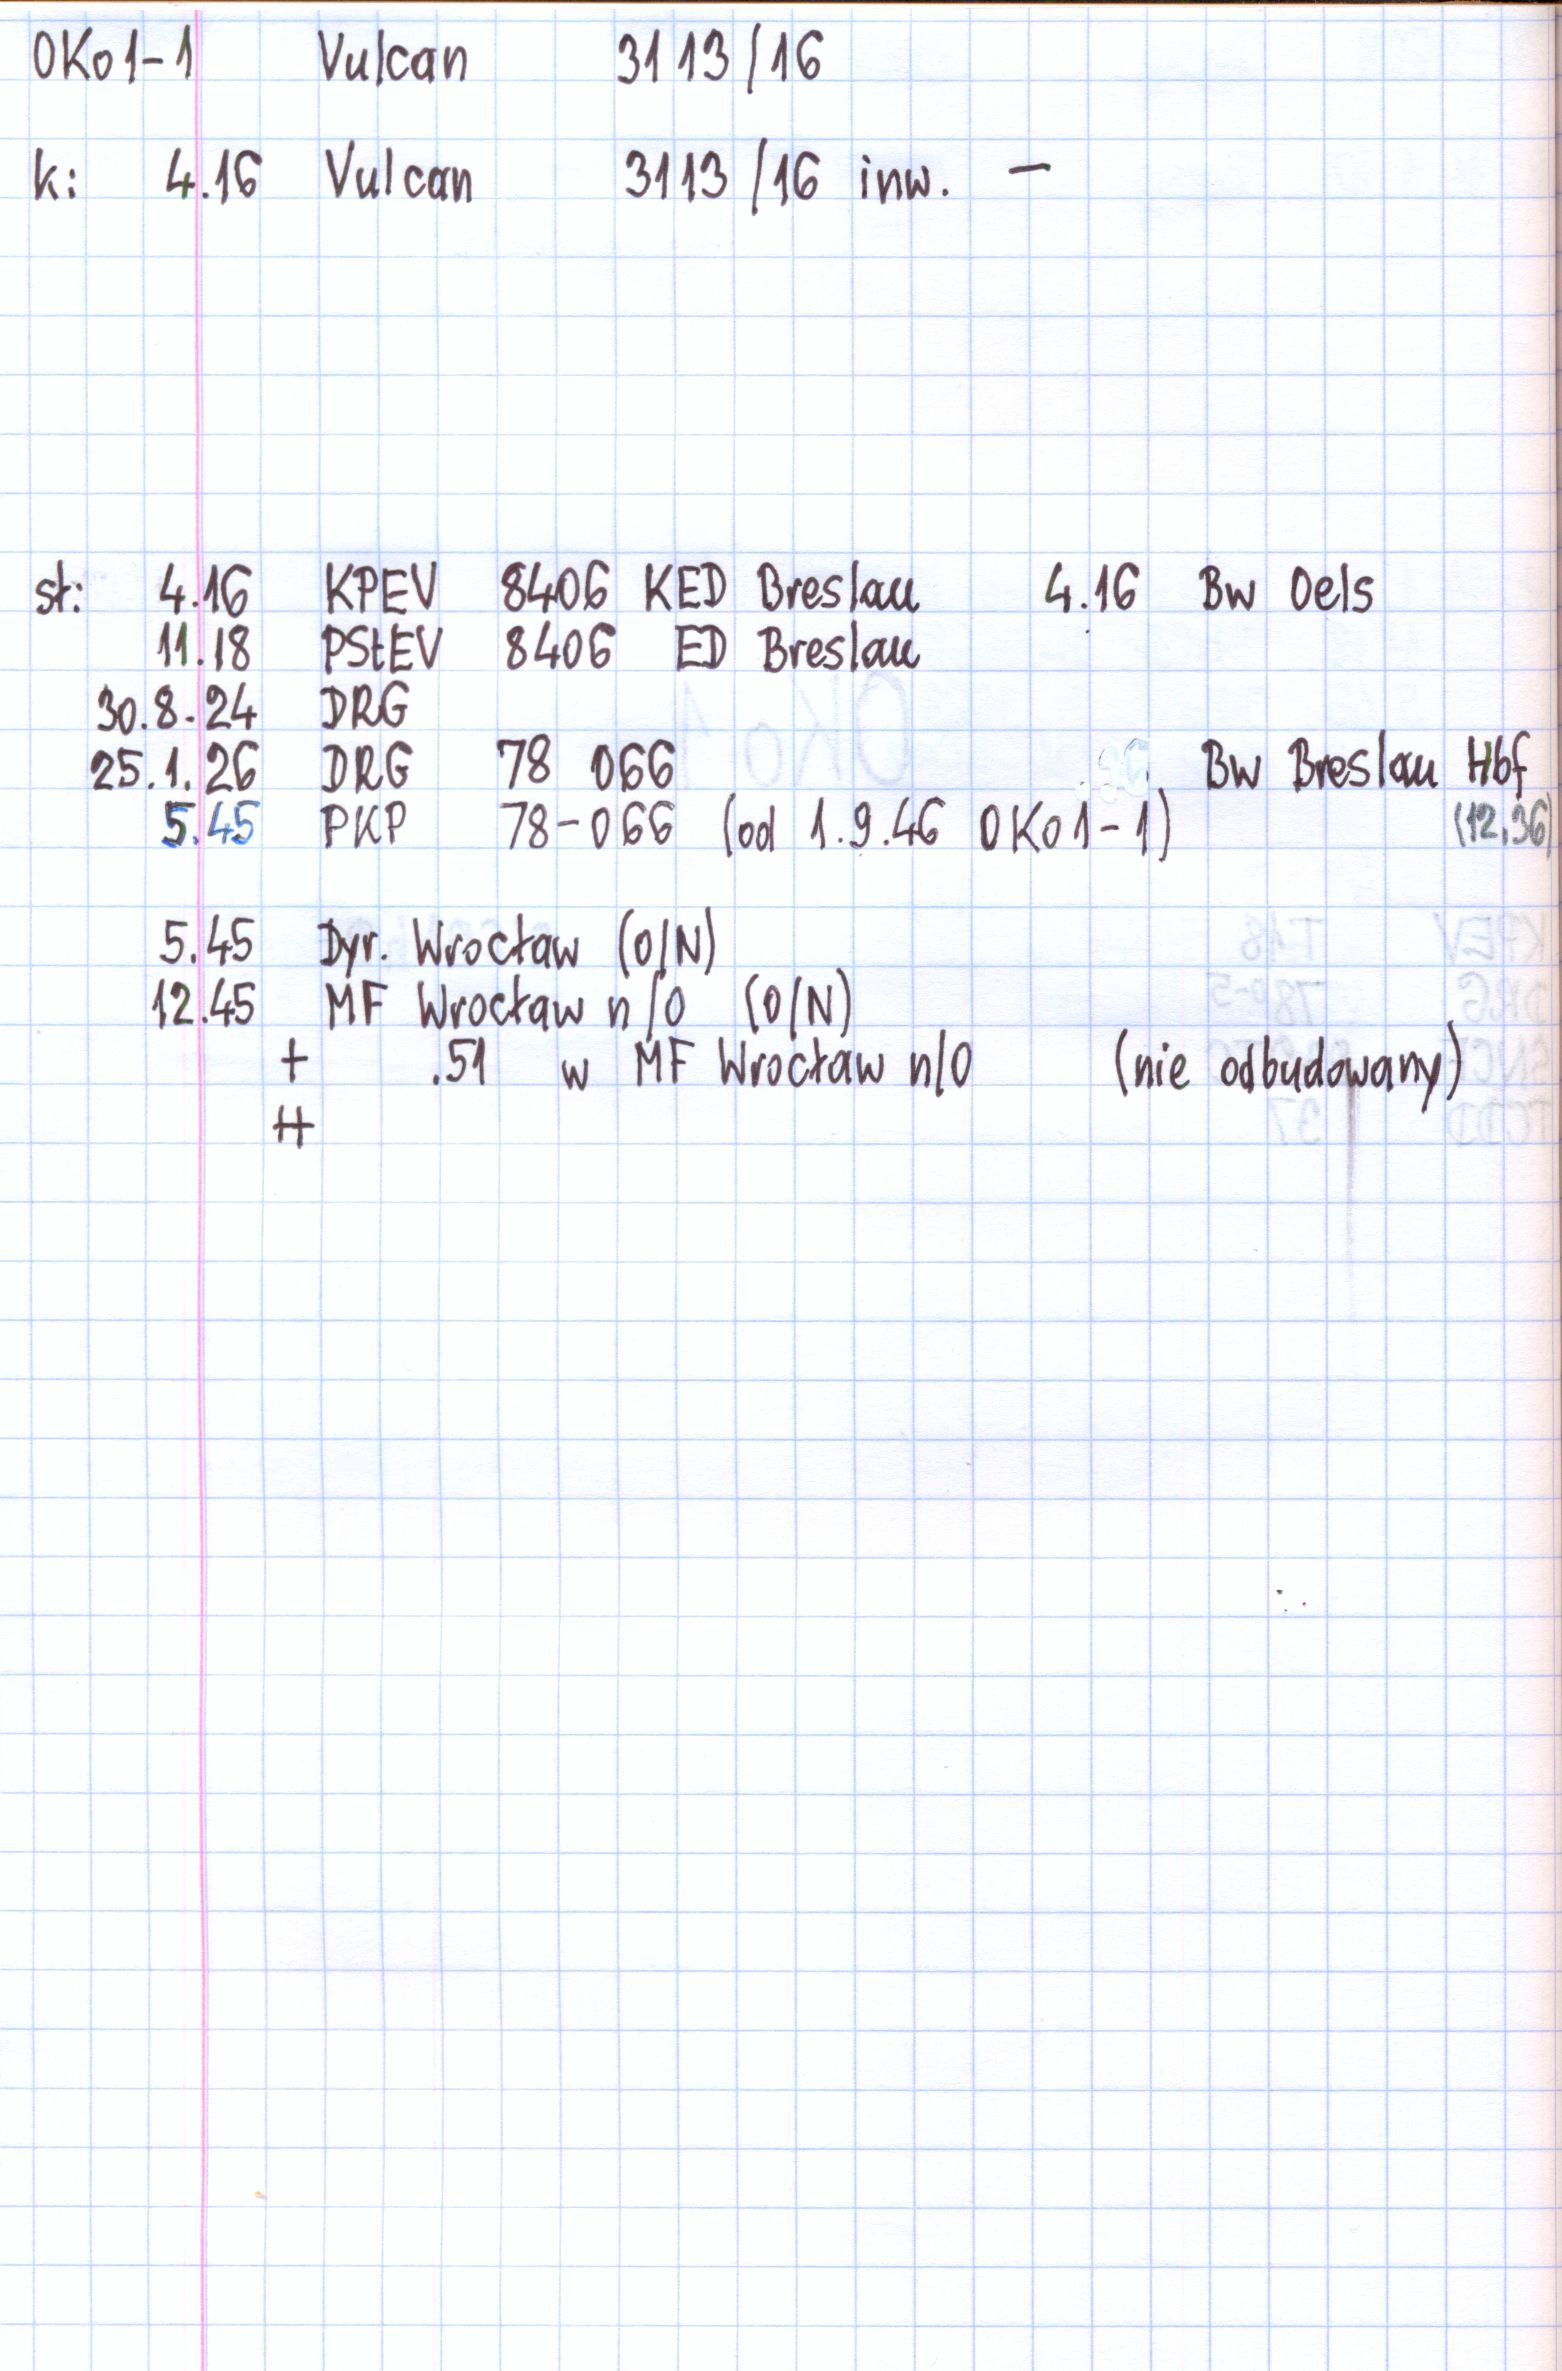 OKo1-1 Vulcan 3113/16
k: 4.16 Vulcan 3113/16 inw. –
st: 4.16 KPEV 8406 KED Breslau 4.16 Bw Oels
11.18 PStEV 8406 ED Breslau
30.8.24 DRG
25.1.26 DRG 78 066 Bw Breslau Hbf
5.45 PKP 78-066 (od 1.9.46 OKo1-1) (12.36)
5.45 Dyr. Wrocław (O/N)
12.45 MF Wrocław n/O (O/N)
+ .51 w MF Wrocław n/O (nie odbudowany)
++